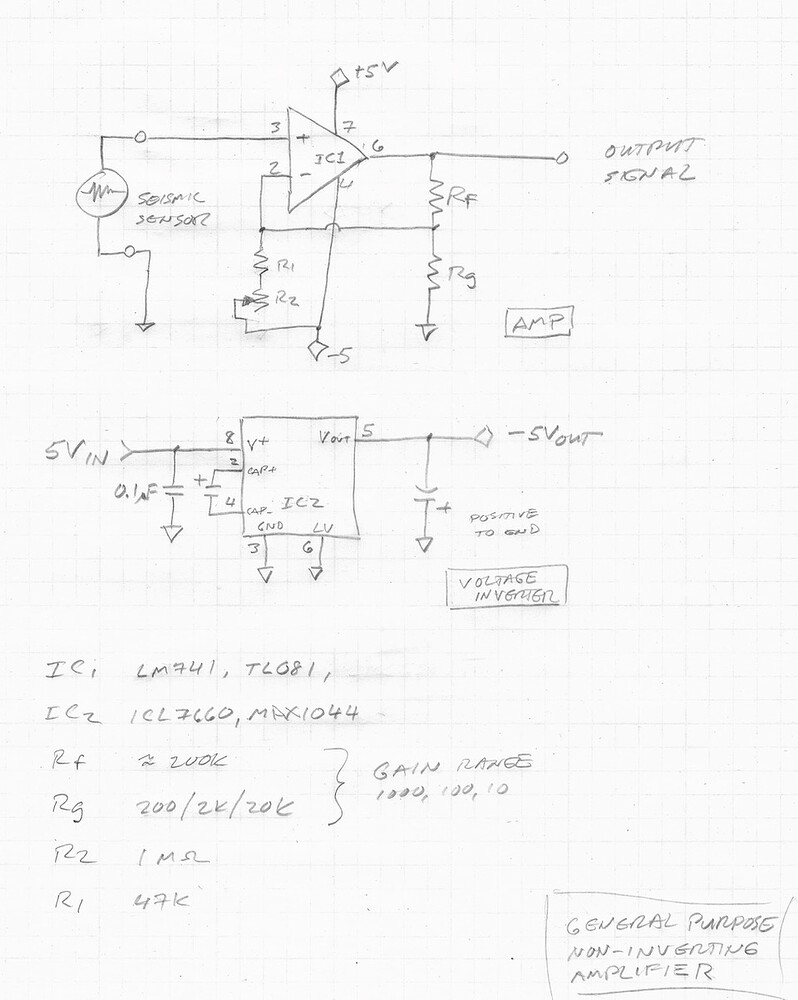 +5V
3
+
7
6
IC1
2
-
4
OUTPUT
SIGNAL
SEISMIC
SENSOR
Rf
R1
R2
Rg
-5
AMP
5VIN
8
V+
VOUT
5
-5VOUT
2
CAP+
+
0.1µF
4
CAP-
IC2
GND
LV
3
6
+
POSITIVE
TO GND
VOLTAGE
INVERTER
IC1 LM741, TL081,
IC2 ICL7660, MAX1044
Rf ≈ 200K
GAIN RANGE
1000, 100, 10
Rg 200/2K/20K
R2 1MΩ
R1 47K
GENERAL PURPOSE
NON-INVERTING
AMPLIFIER